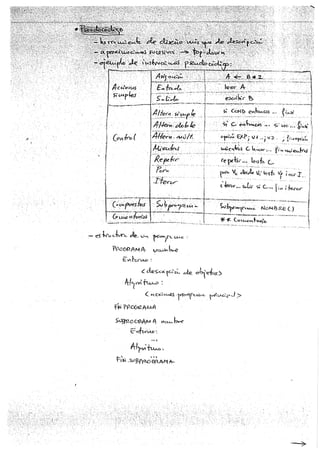 * Pseudocódigo
- herramienta de diseño más que de descripción
- aproximaciones sucesivas → top-down
- ejemplo de instrucciones pseudocódigo:
Acciones simples
Asignación A ← B * 2
Entrada leer A
Salida escribir B
Control
Altern. simple si COND entonces ... fin si
Altern. doble si C entonces ... si no ... fin si
Altern. múlt. opción EXP; v1 ...; v2 ... ; fin opción
Mientras mientras C hacer ... fin mientras
Repetir repetir ... hasta C
Para para Vc desde Vi hasta Vf incr I ...
Iterar iterar ... salir si C ... fin iterar
Compuestas Subprograma Subprograma NOMBRE ( )
Comentarios ** Comentario
- estructura de un programa:
PROGRAMA nombre
Entorno:
< descripción de objetos >
Algoritmo:
< acciones programa principal >
FIN PROGRAMA
SUBPROGRAMA nombre
Entorno:
...
Algoritmo:
...
FIN SUBPROGRAMA
→